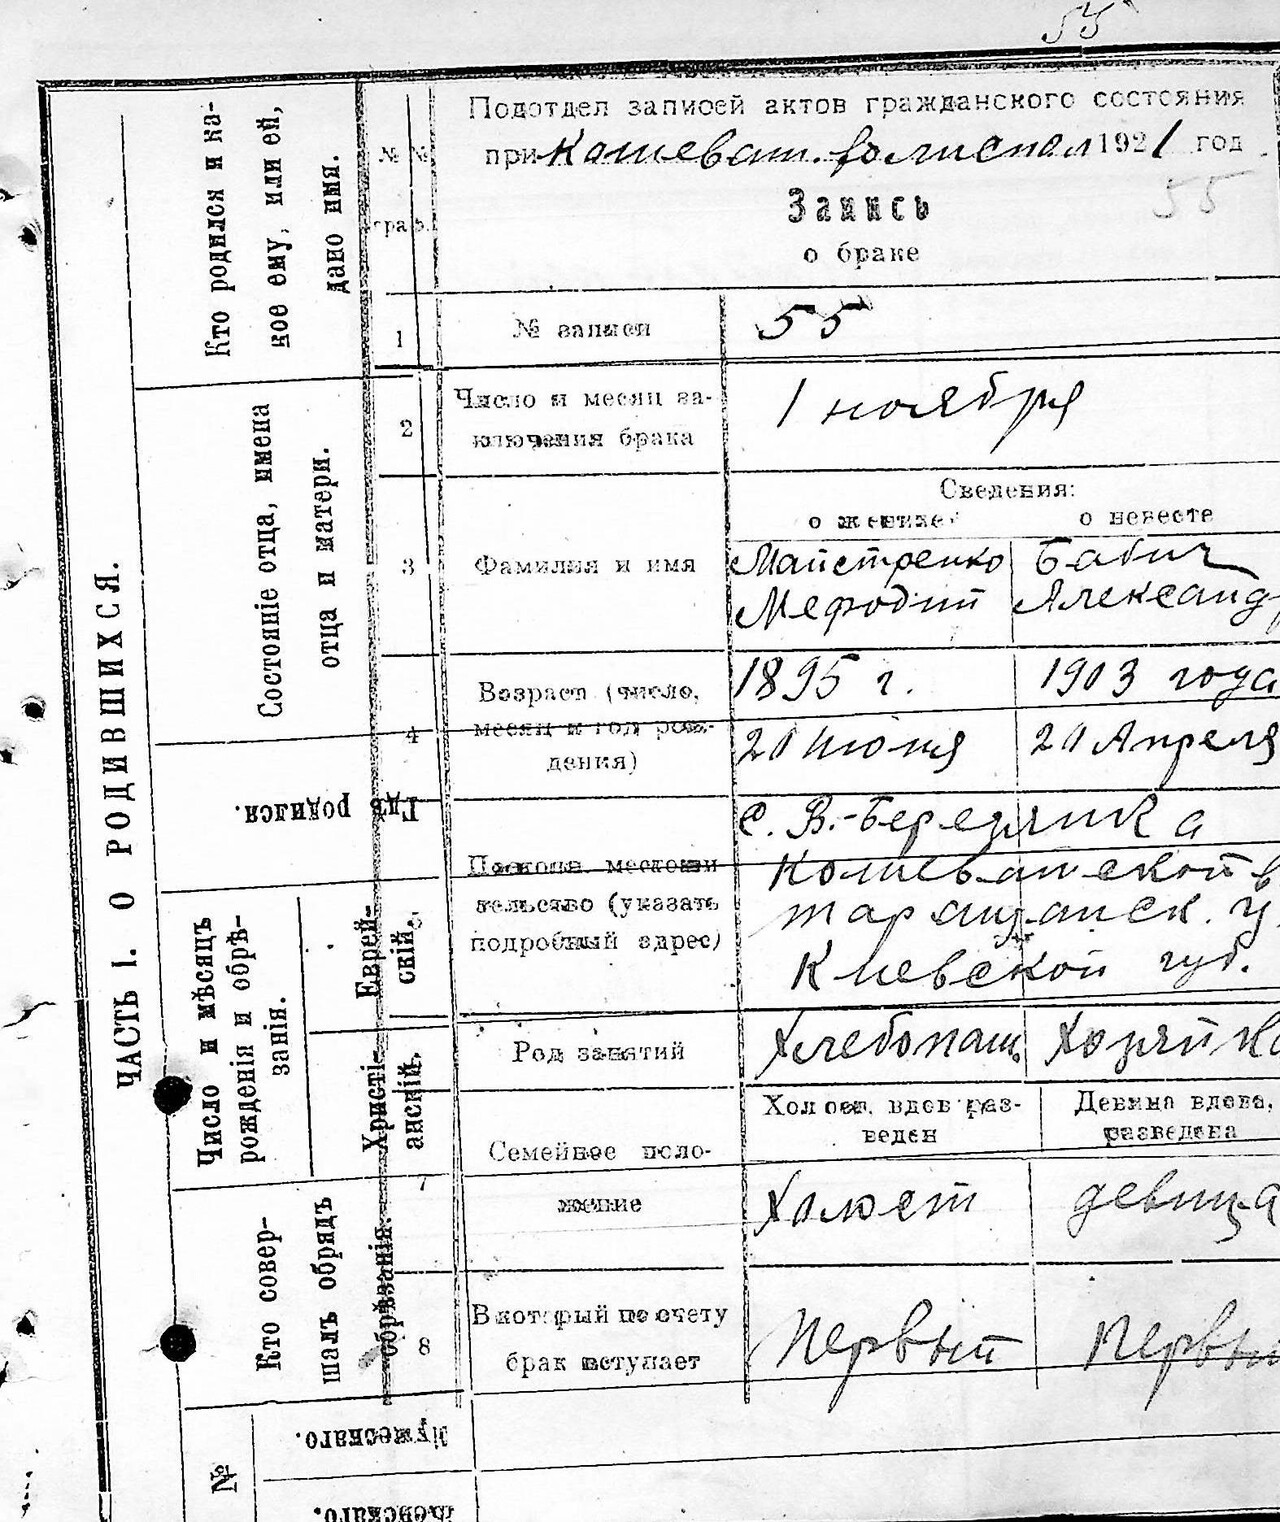 55
Подотдел записей актов гражданского состояния
при Кошеват. волиспол 1921 год
55
Запись
о браке
№ №
граф.
1
№ записи
55
2
Число и месяц за-
ключения брака
1 ноября
Сведения:
о женихе
о невесте
3
Фамилия и имя
Майстренко
Мефодий
Бабич
Александр
4
Возраст (число,
месяц и год рож-
дения)
1895 г.
20 Июня
1903 года
20 Апреля
Постоян. местожи
тельство (указать
подробный адрес)
с. В.-Березянка
Кошеватской в
таращанск. у
Киевской губ.
Род занятий
Хлебопаш.
Хозяйка
7
Семейное поло-
жение
Холост. вдов раз-
веден
Девица вдова,
разведена
Холост
девица
8
В который по счету
брак вступает
Первый
Первый
ЧАСТЬ I. О РОДИВШИХСЯ.
Кто родился и ка-
кое ему, или ей,
дано имя.
Состояніе отца, имена
отца и матери.
Гдѣ родился.
Число и мѣсяцъ
рожденія и обрѣ-
занія.
Еврей-
скій.
Христі-
анскій.
Кто совер-
шалъ обрядъ
обрѣзанія.
№
Мужескаго.
Женскаго.